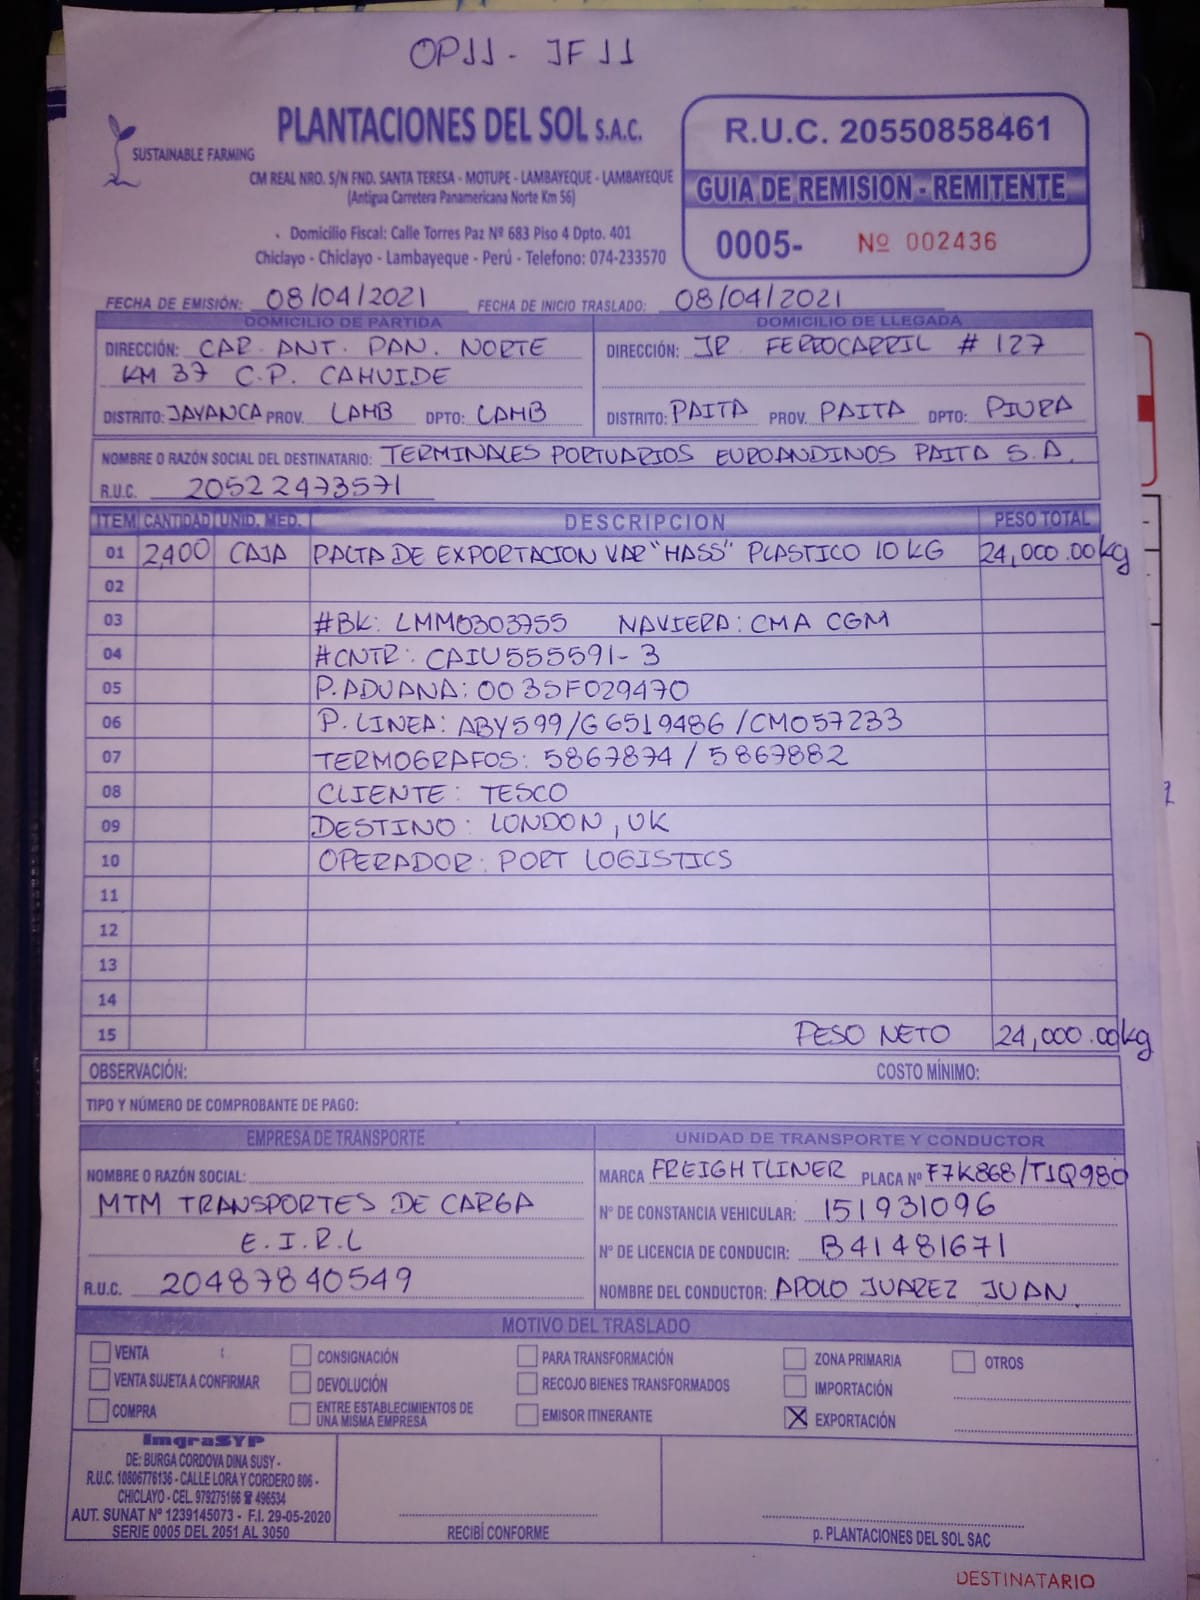 OP11 - JF11
SUSTAINABLE FARMING
PLANTACIONES DEL SOL S.A.C.
CM REAL NRO. S/N FND. SANTA TERESA - MOTUPE - LAMBAYEQUE - LAMBAYEQUE
(Antigua Carretera Panamericana Norte Km 56)
Domicilio Fiscal: Calle Torres Paz Nº 683 Piso 4 Dpto. 401
Chiclayo - Chiclayo - Lambayeque - Perú - Telefono: 074-233570
R.U.C. 20550858461
GUIA DE REMISION - REMITENTE
0005- Nº 002436
FECHA DE EMISIÓN: 08/04/2021 FECHA DE INICIO TRASLADO: 08/04/2021
DOMICILIO DE PARTIDA
DIRECCIÓN: CAR. ANT. PAN. NORTE
KM 37 C.P. CAHUIDE
DISTRITO: JAYANCA PROV. LAMB DPTO: LAMB
DOMICILIO DE LLEGADA
DIRECCIÓN: JR FERROCARRIL # 127
DISTRITO: PAITA PROV. PAITA DPTO: PIURA
NOMBRE O RAZÓN SOCIAL DEL DESTINATARIO: TERMINALES PORTUARIOS EUROANDINOS PAITA S.A.
R.U.C. 20522473571
ITEM CANTIDAD UNID. MED. DESCRIPCION PESO TOTAL
01 2,400 CAJA PALTA DE EXPORTACION VAR "HASS" PLASTICO 10 KG 24,000.00kg
02
03 #BK: LMM0303755 NAVIERA: CMA CGM
04 #CNTR: CAIU555591-3
05 P. ADUANA: 0035F029470
06 P. LINEA: ABY599/G6519486/CM057233
07 TERMOGRAFOS: 5867874 / 5867882
08 CLIENTE: TESCO
09 DESTINO: LONDON, UK
10 OPERADOR: PORT LOGISTICS
11
12
13
14
15 PESO NETO 24,000.00kg
OBSERVACIÓN: COSTO MÍNIMO:
TIPO Y NÚMERO DE COMPROBANTE DE PAGO:
EMPRESA DE TRANSPORTE
NOMBRE O RAZÓN SOCIAL:
MTM TRANSPORTES DE CARGA
E.I.R.L
R.U.C. 20487840549
UNIDAD DE TRANSPORTE Y CONDUCTOR
MARCA FREIGHTLINER PLACA Nº F7K868/T1Q980
Nº DE CONSTANCIA VEHICULAR: 151931096
Nº DE LICENCIA DE CONDUCIR: B41481671
NOMBRE DEL CONDUCTOR: APOLO JUAREZ JUAN.
MOTIVO DEL TRASLADO
VENTA CONSIGNACIÓN PARA TRANSFORMACIÓN ZONA PRIMARIA OTROS
VENTA SUJETA A CONFIRMAR DEVOLUCIÓN RECOJO BIENES TRANSFORMADOS IMPORTACIÓN
COMPRA ENTRE ESTABLECIMIENTOS DE
UNA MISMA EMPRESA EMISOR ITINERANTE X EXPORTACIÓN
ImgraSYP
DE: BURGA CORDOVA DINA SUSY -
R.U.C. 10806776136 - CALLE LORA Y CORDERO 806 -
CHICLAYO - CEL. 979275166 ☎ 496534
AUT. SUNAT Nº 1239145073 - F.I. 29-05-2020
SERIE 0005 DEL 2051 AL 3050
RECIBÍ CONFORME
p. PLANTACIONES DEL SOL SAC
DESTINATARIO